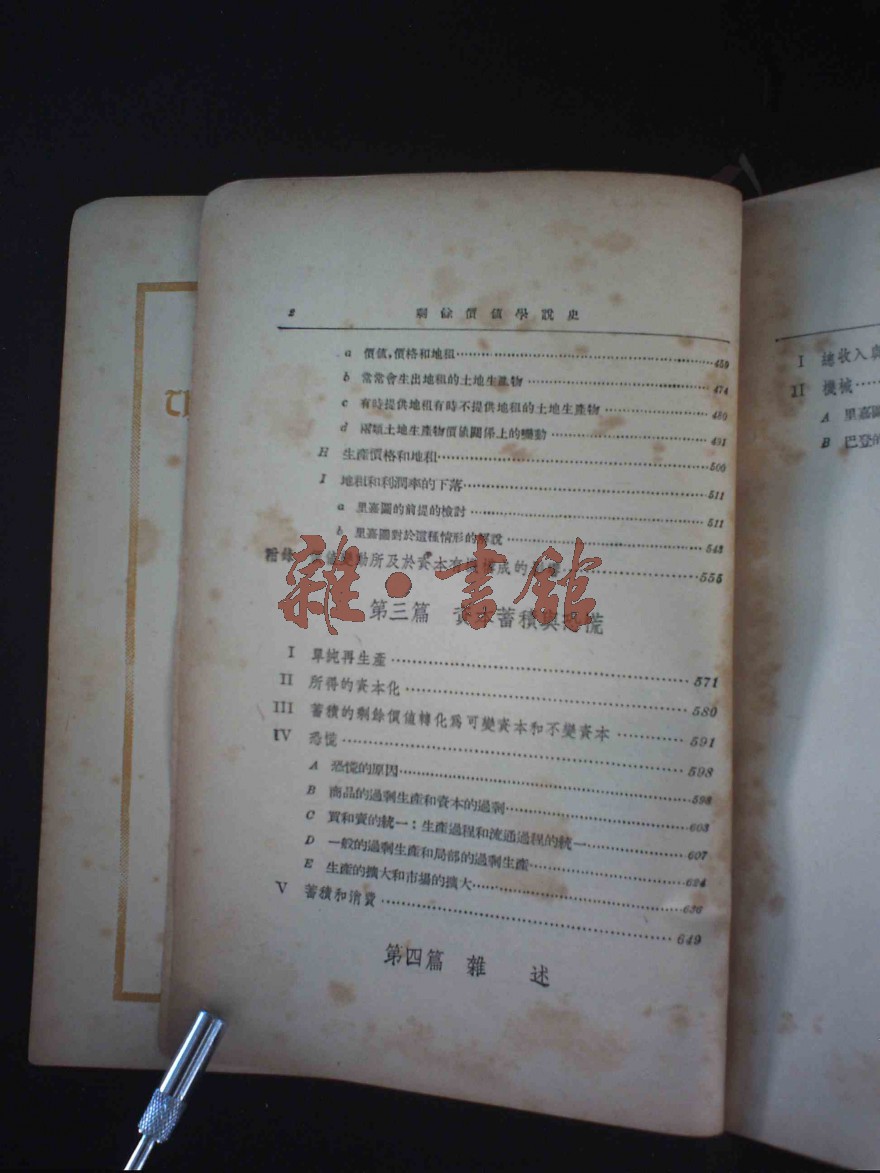 2 剩餘價值學說史
a 價值,價格和地租 459
b 常常會生出地租的土地生產物 474
c 有時提供地租有時不提供地租的土地生產物 480
d 兩類土地生產物價值關係上的變動 491
H 生產價格和地租 500
I 地租和利潤率的下落 511
a 里嘉圖的前提的檢討 511
b 里嘉圖對於這種情形的解說 543
附錄 變動所及於資本有機構成的 555
雜·書館
第三篇 資本蓄積與恐慌
I 單純再生產 571
II 所得的資本化 580
III 蓄積的剩餘價值轉化爲可變資本和不變資本 591
IV 恐慌 598
A 恐慌的原因 598
B 商品的過剩生產和資本的過剩 603
C 買和賣的統一:生產過程和流通過程的統一 607
D 一般的過剩生產和局部的過剩生產 624
E 生產的擴大和市場的擴大 636
V 蓄積和消費 649
第四篇 雜述
I 總收入與
II 機械
A 里嘉圖
B 巴登的